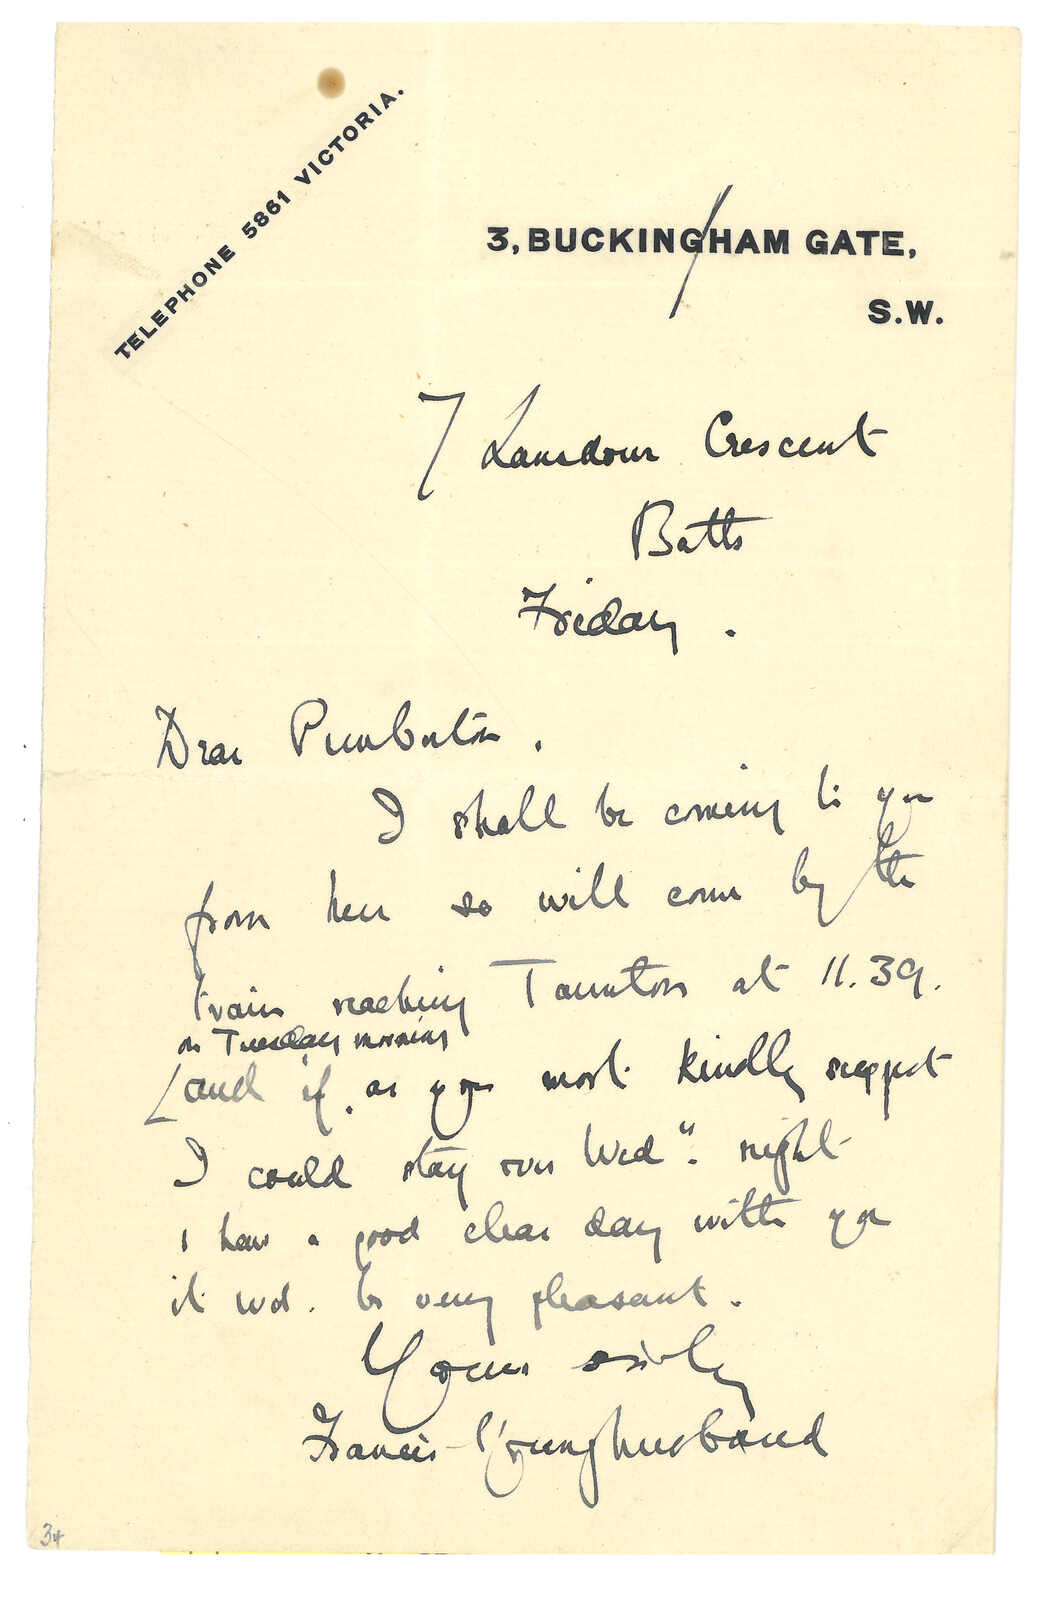 TELEPHONE 5861 VICTORIA.
3, BUCKINGHAM GATE,
S.W.
7 Lansdown Crescent
Bath
Friday.
Dear Pemberton.
I shall be coming to you
from here so will come by the
train reaching Taunton at 11.39.
on Tuesday morning
and if, as you most kindly suggest
I could stay over Wed". night
& have a good clear day with you
it wd. be very pleasant.
Yours
Francis Younghusband